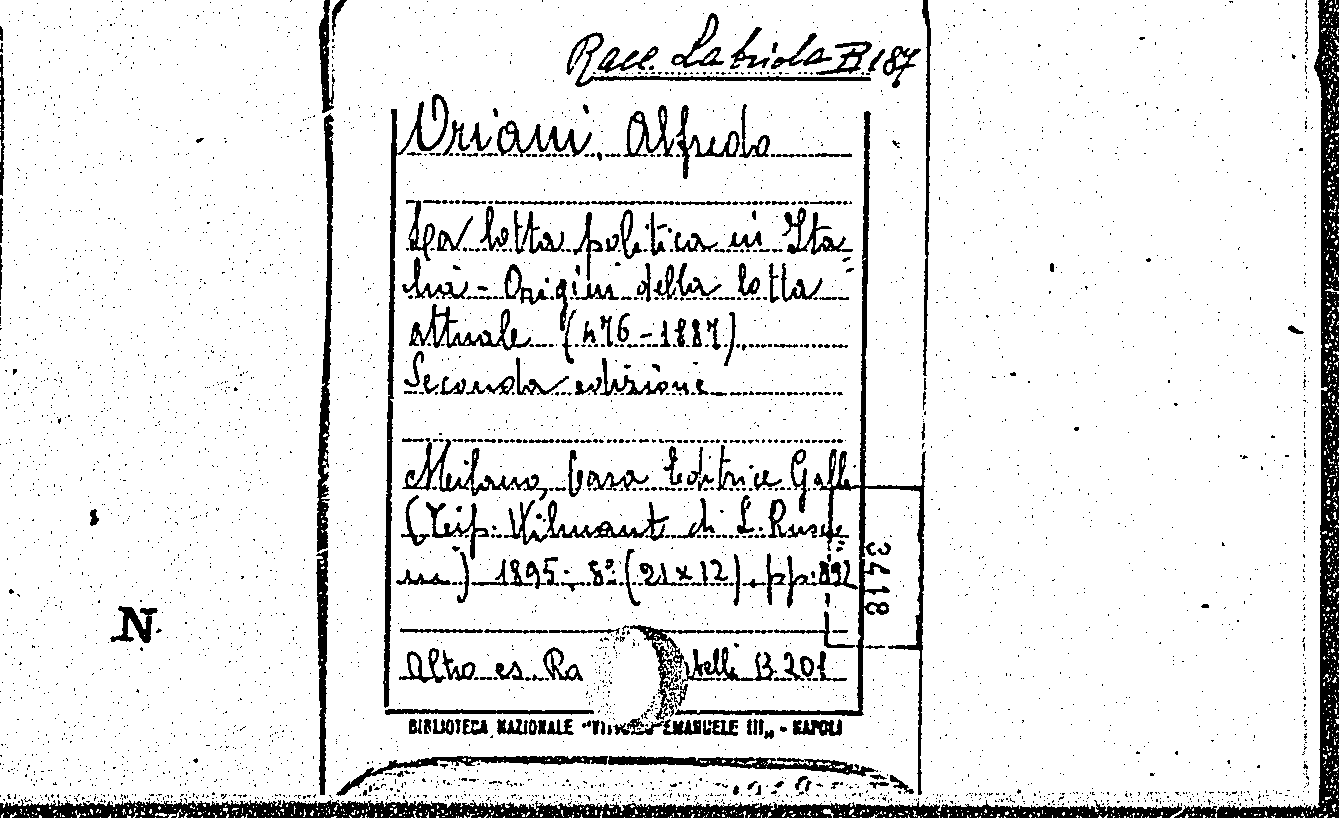 Racc. Labriola B 187
Oriani, Alfredo
La lotta politica in Ita=
lia - Origini della lotta
attuale (476-1887).
Seconda edizione
Milano, Casa Editrice Galli
(Tip. Wilmant di L. Rusco=
ni) 1895; 8° (21 x 12). pp. 892
3418
Altro es. Ra telli B. 201
BIBLIOTECA NAZIONALE "VITTORIO EMANUELE III„ - NAPOLI
N